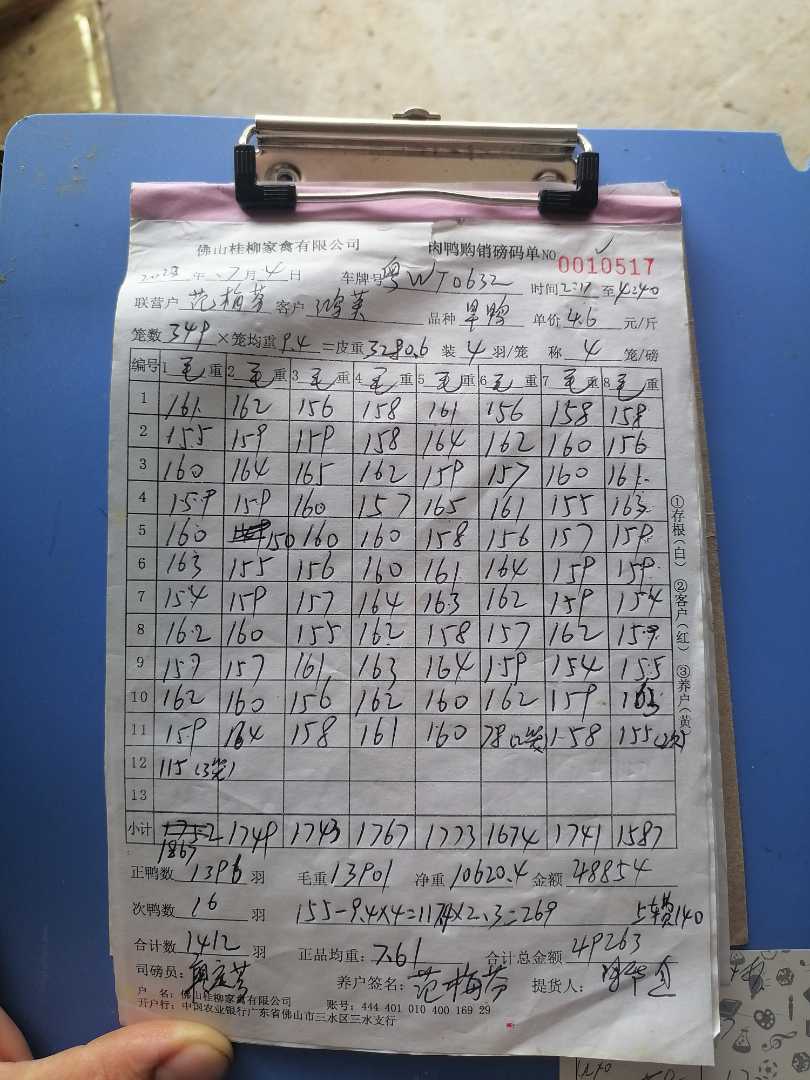 佛山桂柳家禽有限公司 肉鸭购销磅码单NO 0010517
2023年 7月 4日 车牌号 粤WT0632 时间 2:17 至 4:40
联营户 范梅芬 客户 鸿英 品种 单价 4.6 元/斤
笼数 349 ×笼均重 9.4 =皮重 3280.6 装 4 羽/笼 称 4 笼/磅
编号 1 毛重 2 毛重 3 毛重 4 毛重 5 毛重 6 毛重 7 毛重 8 毛重
1 161 162 156 158 161 156 158 158
2 155 159 159 158 164 162 160 156
3 160 164 165 162 159 157 160 161
4 159 159 160 157 165 161 155 163
5 160 150 160 160 158 156 157 159
6 163 155 156 160 161 164 159 159
7 154 159 157 164 163 162 159 154
8 162 160 155 162 158 157 162 159
9 157 157 161 163 164 159 154 155
10 162 160 156 162 160 162 159
11 159 164 158 161 160 78(2笼) 158 155(次)
12 115(3笼)
13
小计 1752 1749 1743 1767 1773 1674 1741 1587
1867
正鸭数 1396 羽 毛重 13901 净重 10620.4 金额 48854
次鸭数 16 羽 155-9.4×4=117.4×2.3=269 上车费140
合计数 1412 羽 正品均重: 7.61 合计总金额 49263
司磅员: 养户签名: 范梅芬 提货人:
户 名: 佛山桂柳家禽有限公司 账号: 444 401 010 400 169 29
开户行: 中国农业银行广东省佛山市三水区三水支行
①存根(白) ②客户(红) ③养户(黄)